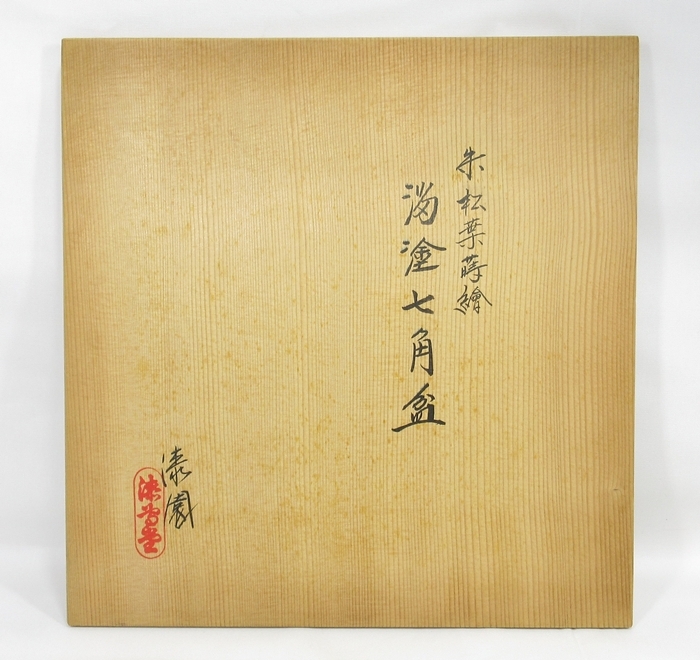 朱松葉蒔繪
溜塗七角盆
漆園